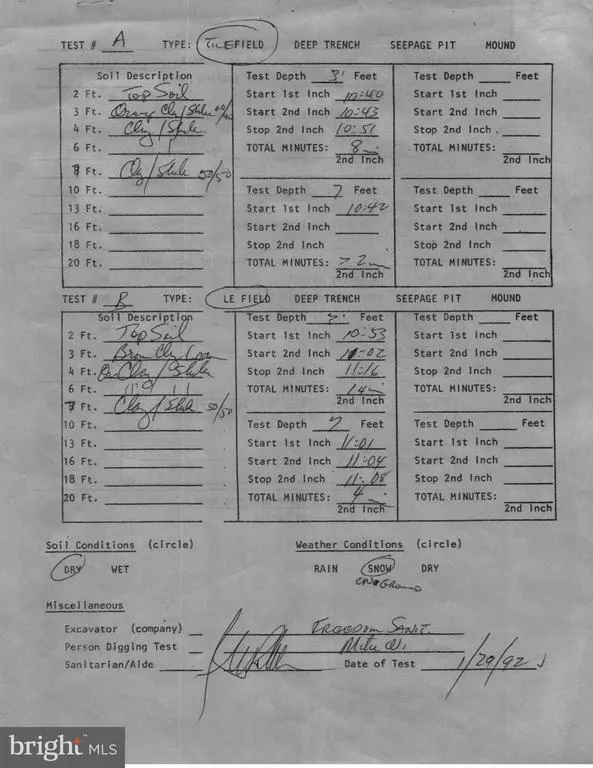 TEST # A TYPE: TILEFIELD DEEP TRENCH SEEPAGE PIT MOUND
Soil Description Test Depth 3' Feet Test Depth ___ Feet
2 Ft. Top Soil Start 1st Inch 10:40 Start 1st Inch
3 Ft. Orange Clay/Shale Start 2nd Inch 10:43 Start 2nd Inch
4 Ft. Clay/Shale Stop 2nd Inch 10:51 Stop 2nd Inch
6 Ft. TOTAL MINUTES: 8 TOTAL MINUTES:
2nd Inch 2nd Inch
Ft. Clay/Shale 50/50
10 Ft. Test Depth 7 Feet Test Depth ___ Feet
13 Ft. Start 1st Inch 10:42 Start 1st Inch
16 Ft. Start 2nd Inch Start 2nd Inch
18 Ft. Stop 2nd Inch Stop 2nd Inch
20 Ft. TOTAL MINUTES: > 2 TOTAL MINUTES:
2nd Inch 2nd Inch
TEST # B TYPE: LE FIELD DEEP TRENCH SEEPAGE PIT MOUND
Soil Description Test Depth Feet Test Depth ___ Feet
2 Ft. Top Soil Start 1st Inch 10:53 Start 1st Inch
3 Ft. Brown Clay Loam Start 2nd Inch 11:02 Start 2nd Inch
4 Ft. Clay/Shale Stop 2nd Inch 11:16 Stop 2nd Inch
6 Ft. TOTAL MINUTES: 14 TOTAL MINUTES:
2nd Inch 2nd Inch
Ft. Clay/Shale 50/50
10 Ft. Test Depth 7 Feet Test Depth ___ Feet
13 Ft. Start 1st Inch 11:01 Start 1st Inch
16 Ft. Start 2nd Inch 11:04 Start 2nd Inch
18 Ft. Stop 2nd Inch 11:08 Stop 2nd Inch
20 Ft. TOTAL MINUTES: 4 TOTAL MINUTES:
2nd Inch 2nd Inch
Soil Conditions (circle) Weather Conditions (circle)
DRY WET RAIN SNOW DRY
ON GROUND
Miscellaneous
Excavator (company) FREEDOM SANT.
Person Digging Test Mike W.
Sanitarian/Aide Date of Test 1/29/92
bright MLS